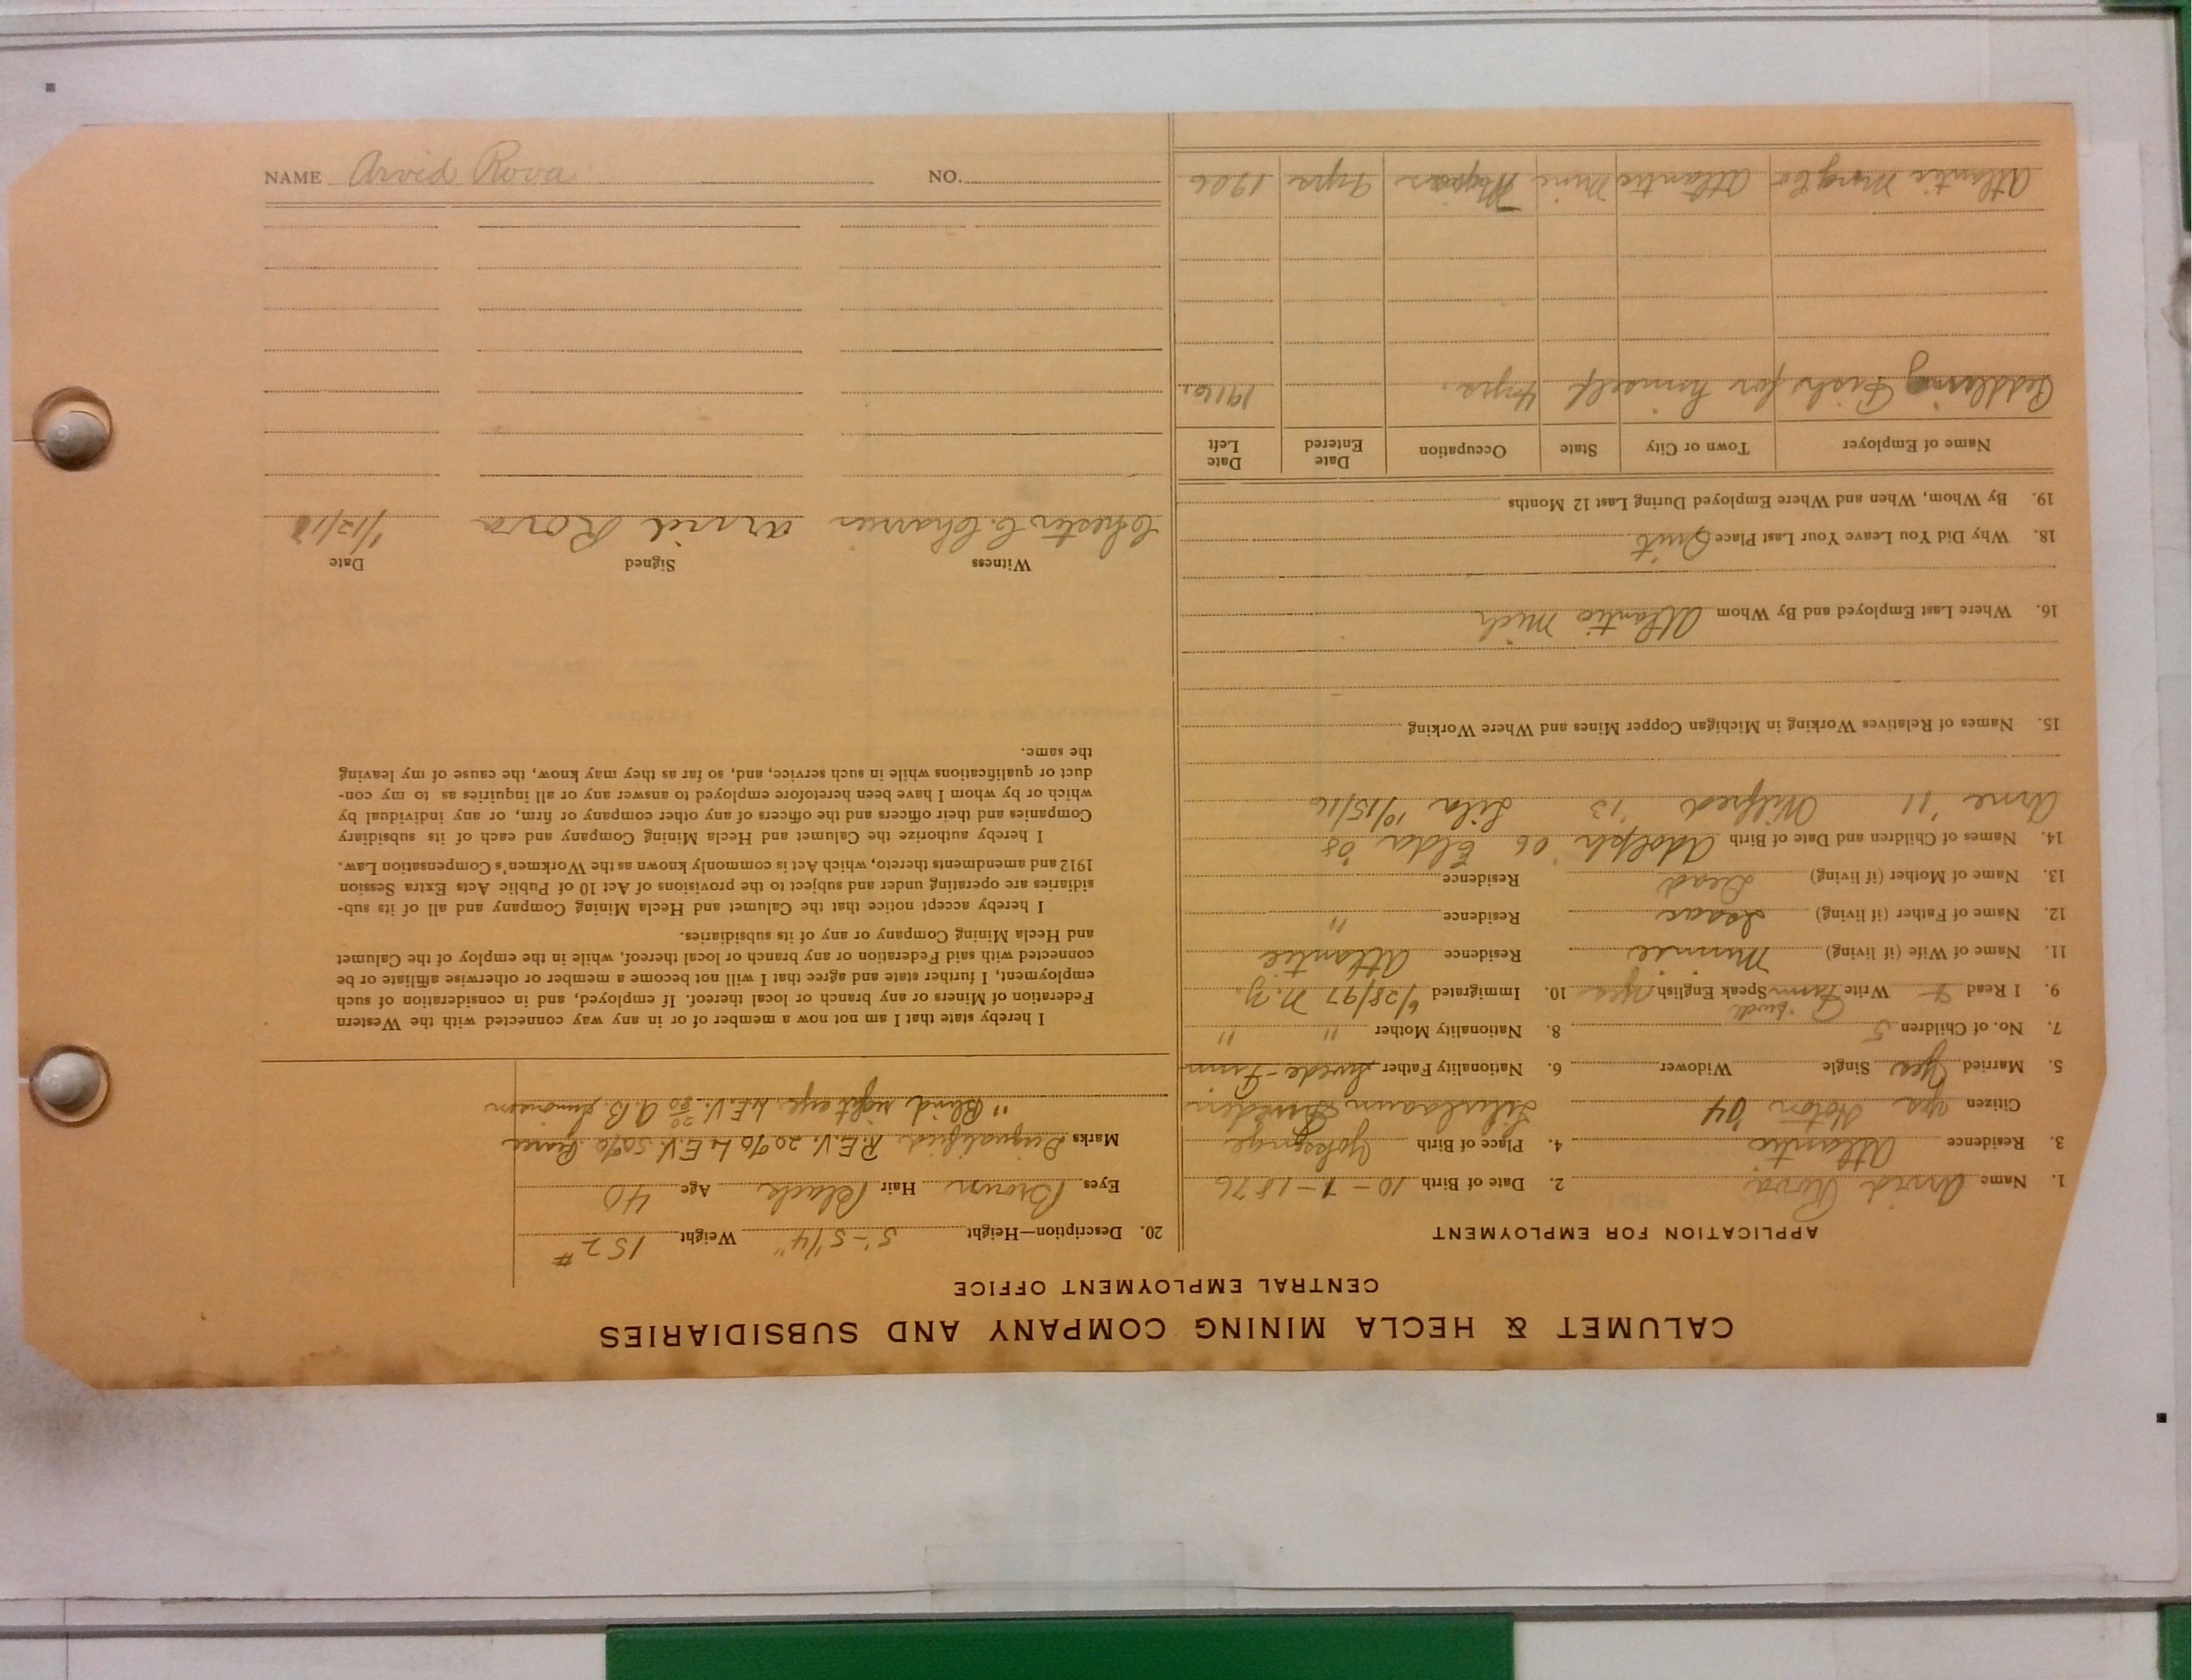 CALUMET & HECLA MINING COMPANY AND SUBSIDIARIES
CENTRAL EMPLOYMENT OFFICE
APPLICATION FOR EMPLOYMENT
1. Name Arvid Rova 2. Date of Birth 10-1-1876
3. Residence Atlantic 4. Place of Birth
Citizen yes Hoton '04
5. Married Yes Single Widower 6. Nationality Father Swede-Finn
7. No. of Children 5 8. Nationality Mother " "
9. I Read + Write Finn Swede Speak English Yes 10. Immigrated 6/28/97 N.Y.
11. Name of Wife (if living) Minnie Residence Atlantic
12. Name of Father (if living) Isaac Residence "
13. Name of Mother (if living) Dead Residence
14. Names of Children and Date of Birth Adolph '06 Elda '08
Arne '11 Wilfred '13 Lila 10/15/16
15. Names of Relatives Working in Michigan Copper Mines and Where Working
16. Where Last Employed and By Whom Atlantic Mich
18. Why Did You Leave Your Last Place Quit
19. By Whom, When and Where Employed During Last 12 Months
Name of Employer Town or City State Occupation Date Entered Date Left
Peddling Fish for himself 4yrs. 1916.
Atlantic Mng Co Atlantic Mine 7yrs 1906
20. Description—Height 5'-5 1/4" Weight 152#
Eyes Brown Hair Black Age 40
Marks Disqualified R.E.V. 20% L.E.V. 50%
" Blind right eye. L.E.V. 20/80 A.B. Simonson
I hereby state that I am not now a member of or in any way connected with the Western
Federation of Miners or any branch or local thereof. If employed, and in consideration of such
employment, I further state and agree that I will not become a member or otherwise affiliate or be
connected with said Federation or any branch or local thereof, while in the employ of the Calumet
and Hecla Mining Company or any of its subsidiaries.
I hereby accept notice that the Calumet and Hecla Mining Company and all of its sub-
sidiaries are operating under and subject to the provisions of Act 10 of Public Acts Extra Session
1912 and amendments thereto, which Act is commonly known as the Workmen's Compensation Law.
I hereby authorize the Calumet and Hecla Mining Company and each of its subsidiary
Companies and their officers and the officers of any other company or firm, or any individual by
which or by whom I have been heretofore employed to answer any or all inquiries as to my con-
duct or qualifications while in such service, and, so far as they may know, the cause of my leaving
the same.
Witness Signed Date
Chester C. Arvid Rova 1/12/17
NAME Arvid Rova NO.